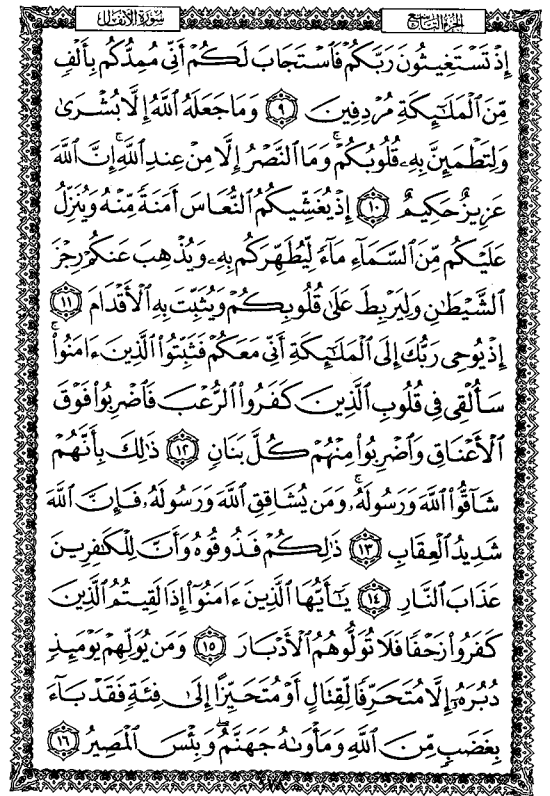 سُورَةُ الأَنفَالِ
الجُزْءُ التَّاسِعُ
إِذْ تَسْتَغِيثُونَ رَبَّكُمْ فَٱسْتَجَابَ لَكُمْ أَنِّى مُمِدُّكُم بِأَلْفٍ
مِّنَ ٱلْمَلَٰٓئِكَةِ مُرْدِفِينَ ۝٩ وَمَا جَعَلَهُ ٱللَّهُ إِلَّا بُشْرَىٰ
وَلِتَطْمَئِنَّ بِهِۦ قُلُوبُكُمْ ۚ وَمَا ٱلنَّصْرُ إِلَّا مِنْ عِندِ ٱللَّهِ ۚ إِنَّ ٱللَّهَ
عَزِيزٌ حَكِيمٌ ۝١٠ إِذْ يُغَشِّيكُمُ ٱلنُّعَاسَ أَمَنَةً مِّنْهُ وَيُنَزِّلُ
عَلَيْكُم مِّنَ ٱلسَّمَآءِ مَآءً لِّيُطَهِّرَكُم بِهِۦ وَيُذْهِبَ عَنكُمْ رِجْزَ
ٱلشَّيْطَٰنِ وَلِيَرْبِطَ عَلَىٰ قُلُوبِكُمْ وَيُثَبِّتَ بِهِ ٱلْأَقْدَامَ ۝١١
إِذْ يُوحِى رَبُّكَ إِلَى ٱلْمَلَٰٓئِكَةِ أَنِّى مَعَكُمْ فَثَبِّتُوا۟ ٱلَّذِينَ ءَامَنُوا۟ ۚ
سَأُلْقِى فِى قُلُوبِ ٱلَّذِينَ كَفَرُوا۟ ٱلرُّعْبَ فَٱضْرِبُوا۟ فَوْقَ
ٱلْأَعْنَاقِ وَٱضْرِبُوا۟ مِنْهُمْ كُلَّ بَنَانٍ ۝١٢ ذَٰلِكَ بِأَنَّهُمْ
شَآقُّوا۟ ٱللَّهَ وَرَسُولَهُۥ ۚ وَمَن يُشَاقِقِ ٱللَّهَ وَرَسُولَهُۥ فَإِنَّ ٱللَّهَ
شَدِيدُ ٱلْعِقَابِ ۝١٣ ذَٰلِكُمْ فَذُوقُوهُ وَأَنَّ لِلْكَٰفِرِينَ
عَذَابَ ٱلنَّارِ ۝١٤ يَٰٓأَيُّهَا ٱلَّذِينَ ءَامَنُوٓا۟ إِذَا لَقِيتُمُ ٱلَّذِينَ
كَفَرُوا۟ زَحْفًا فَلَا تُوَلُّوهُمُ ٱلْأَدْبَارَ ۝١٥ وَمَن يُوَلِّهِمْ يَوْمَئِذٍ
دُبُرَهُۥٓ إِلَّا مُتَحَرِّفًا لِّقِتَالٍ أَوْ مُتَحَيِّزًا إِلَىٰ فِئَةٍ فَقَدْ بَآءَ
بِغَضَبٍ مِّنَ ٱللَّهِ وَمَأْوَىٰهُ جَهَنَّمُ ۖ وَبِئْسَ ٱلْمَصِيرُ ۝١٦